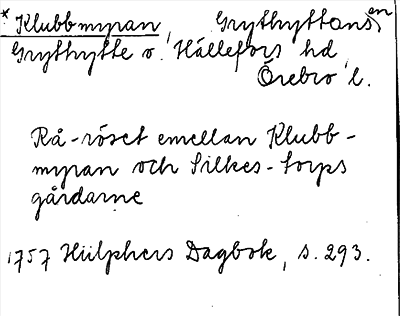 * Klubbmyran, Grythyttans en
Grythytte o. Hällefors hd,
Örebro l.
Rå-röset emellan Klubb-
myran och Silkes-torps
gårdarne
1757 Hülphers Dagbok, s. 293.